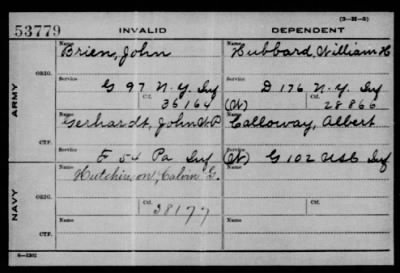 (3-25-5)
53779 INVALID DEPENDENT
Name Brien, John Name Hubbard, William H
ARMY ORIG. Service G 97 N.Y. Inf Service D 176 N.Y. Inf
Ctf. 36164 (W) Ctf. 28866
CTF. Name Gerhardt, John Name Calloway, Albert
Service F 54 Pa Inf Service G 102 USC Inf
NAVY ORIG. Name Hutchinson, Calvin G. Name
Ctf. 38177 Ctf.
CTF. Name Name